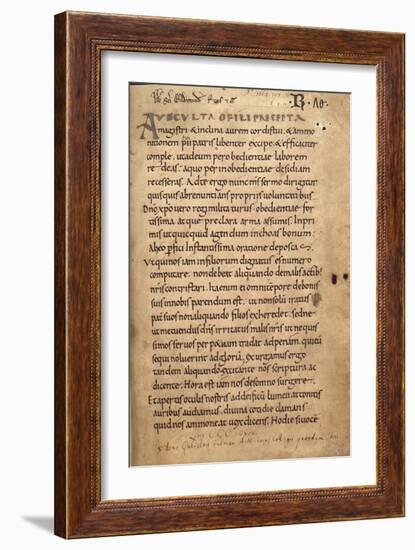 ·B· Λθ·
AUSCULTA OFILI PRECEPTA
magistri & inclina aurem cordis tui. & ammo
nitionem pii patris libenter excipe. & efficaciter
comple. ut ad eum per obedientiae laborem
redeas. a quo per inobedientiae desidiam
recesseras. Ad te ergo nunc mi sermo dirigitur
quisquis abrenuntians propriis voluntatibus.
Dno xpo vero regi militaturus. obedientiae for
tissima atque preclara arma assumis. Inpri
mis ut quicquid agendum inchoas bonum.
Ab eo pfici Instantissima oratione deposcas.
Ut qui nos iam in filiorum dignatus es numero
computare. non debet aliquando de malis actib;
nris contristari. ita enim ei omni tempore de bonis
suis in nobis parendum est. ut non solu iratus
pat suos non aliquando filios exheredet. sed ne
ut metuendus dns irritatus malis nris ut nequis
simos servos per p&uam tradat ad penam. qui eu
sequi noluerint ad gloria. Exurgamus ergo
tandem aliquando excitante nos scriptura ac
dicente. Hora est iam nos de somno surgere.
Et apertis oculis nostris ad deificu lumen attonitis
auribus audiamus. divina cotidie clamans
quid nos ammoneat vox dicens. Hodie si voce